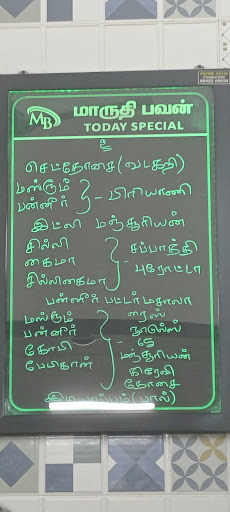 MB மாருதி பவன்
TODAY SPECIAL
செட்தோசை (வடகறி)
மஸ்ரூம்
பன்னீர் } - பிரியாணி
இட்லி மஞ்சூரியன்
சில்லி
கைமா
சில்லிகைமா } - சப்பாத்தி
புரோட்டா
பன்னீர் பட்டர் மதாலா
மஸ்ரூம்
பன்னீர்
கோபி
பேபிகான் } - ரைஸ்
நூடுல்ஸ்
65
மஞ்சூரியன்
கிரேவி
தோசை
இடியாப்பம் (பால்)